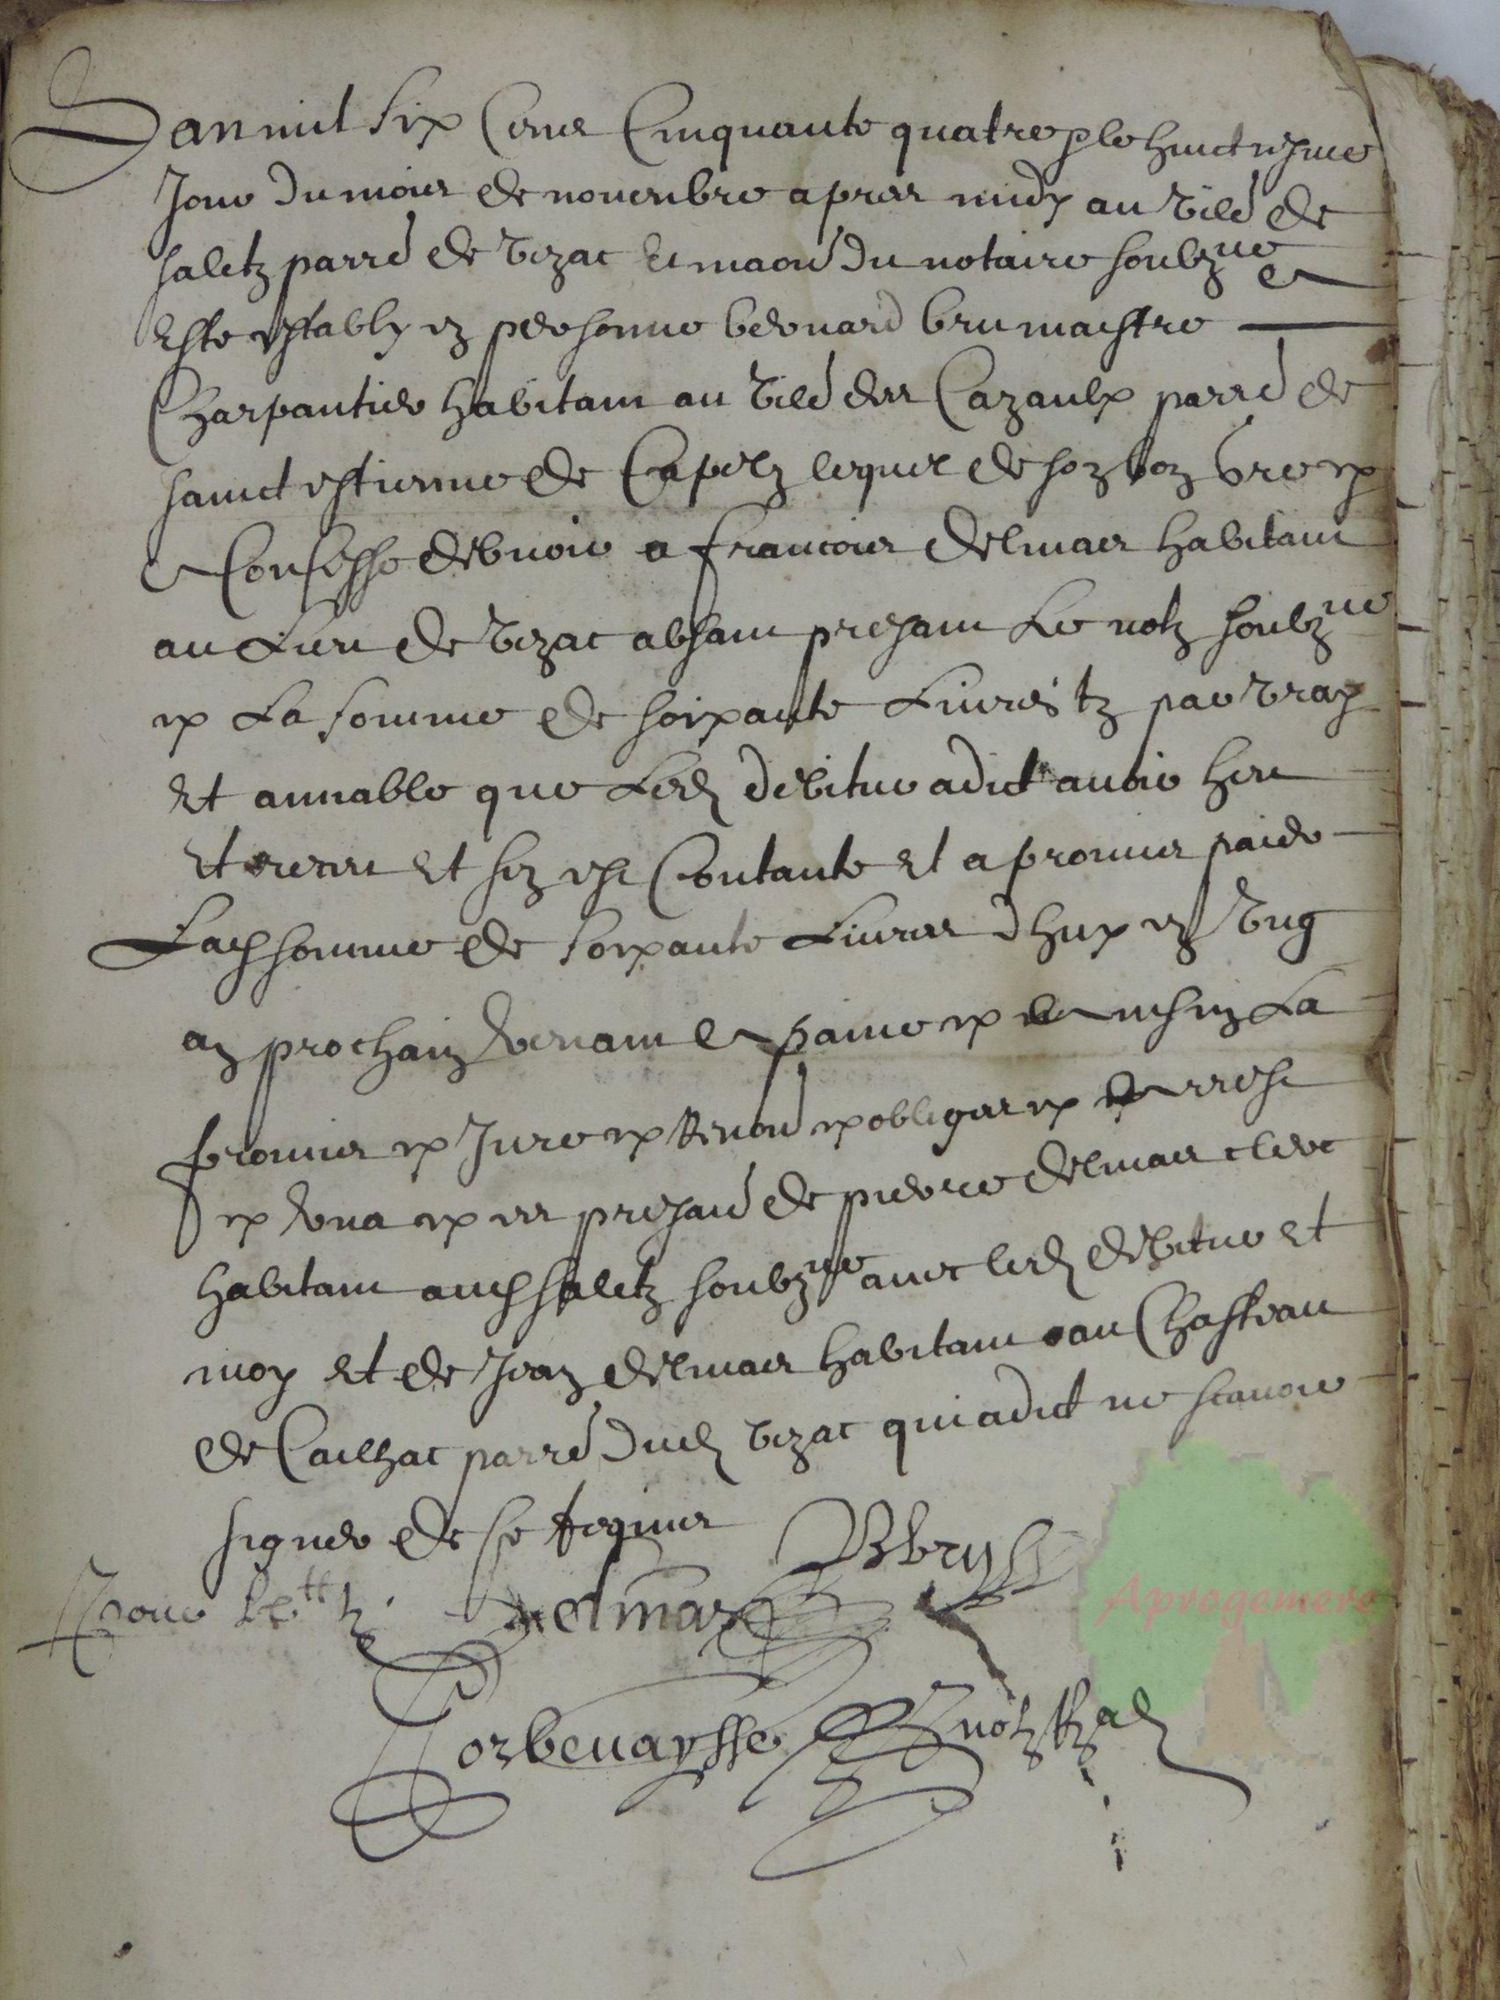 Lan mil six cens cinquante quatre et le huictiesme
jour du moies de novembre apres midy au vilé de
saletz parré de vezac et maon du notaire soubzne
este estably en personne bernard bru maistre
Charpantier habitant au vilé des Cazaulx parré de
sainct estienne de Capelz lequel de son bon gre
confesse debvoir a francois delmas habitant
au lieu de vezac absant presant le notz soubzne
la somme de soixante livres tz par vray
et amiable que led debiteur a dict avoir heu
et receu et sen est contante et a promis paier
lad somme de soixante livres dhuy en ung
an prochain venant paine la
promis jure renon obliges
presans de pierre delmas clerc
habitant aud saletz soubzne avec led debiteur et
moy et de jean delmas habitant au Chasteau
de Cailhac parré dud vezac qui a dict ne scavoir
signer de ce requis
B bru
delmas
Corbenaysse notz
Aprogemere